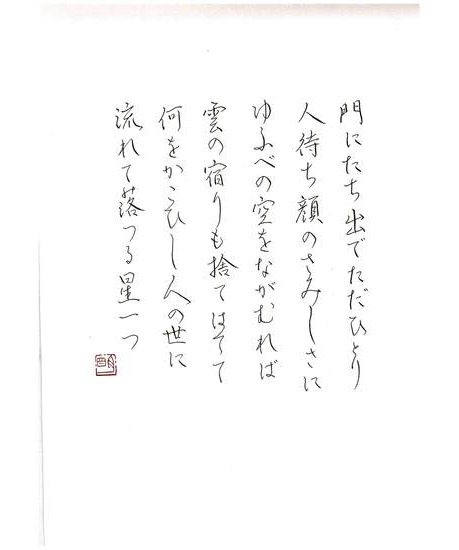 門にたち出でただひとり
人待ち顔のさみしさに
ゆふべの空をながむれば
雲の宿りも捨てはてて
何をかこひし人の世に
流れて落つる星一つ